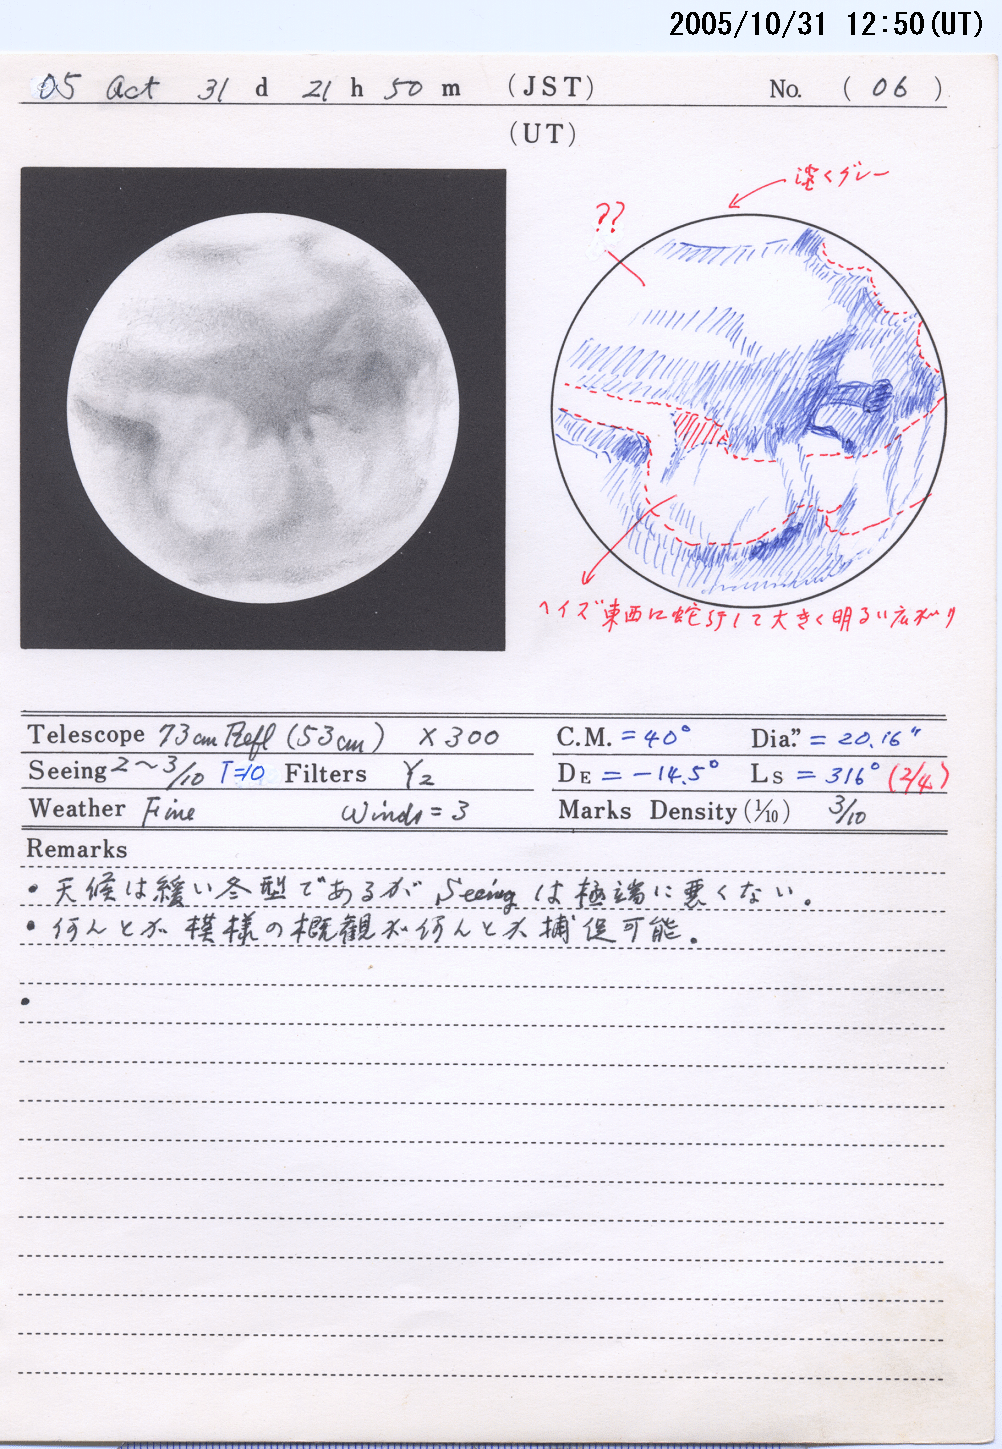 2005/10/31 12:50(UT)
05 Oct 31 d 21 h 50 m (JST) No. (06)
(UT)
淡くグレー
??
ヘイズ東西に蛇行して大きく明るい広がり
Telescope 73cm Refl (53cm) ×300 C.M. = 40° Dia." = 20.16"
Seeing 2~3/10 T=10 Filters Y2 DE = -14.5° Ls = 316° (2/4)
Weather Fine Winds = 3 Marks Density (1/10) 3/10
Remarks
・天候は緩い冬型であるが Seeing は極端に悪くない。
・何んとか模様の概観が何んとか捕促可能.
・